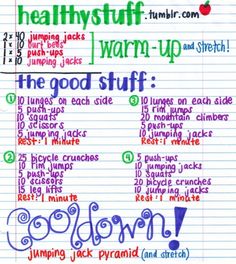 healthystuff.tumblr.com
2 x 40 jumping jacks
1 x 10 burpees
1 x 5 push-ups
1 x 10 jumping jacks
warm-up and stretch!
the good stuff:
① 10 lunges on each side
5 push-ups
10 squats
10 scissors
5 jumping jacks
Rest: 1 minute
② 25 bicycle crunches
10 rim jumps
5 push-ups
10 scissors
15 leg lifts
Rest: 1 minute
③ 10 lunges on each side
15 rim jumps
20 mountain climbers
5 push-ups
10 jumping jacks
Rest: 1 minute
④ 5 push-ups
10 jumping jacks
10 squats
20 bicycle crunches
10 jumping jacks
Rest: 1 minute
Cooldown!
jumping jack pyramid (and stretch)